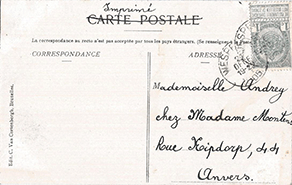 Imprimé
CARTE POSTALE
La correspondance au recto n'est pas acceptée par tous les pays étrangers. (Se renseigner à la Poste.)
CORRESPONDANCE
ADRESSE
Mademoiselle Andrey
chez Madame Montens
Rue Kipdorp, 44
Anvers.
Edit. C. Van Cortenbergh, Bruxelles.